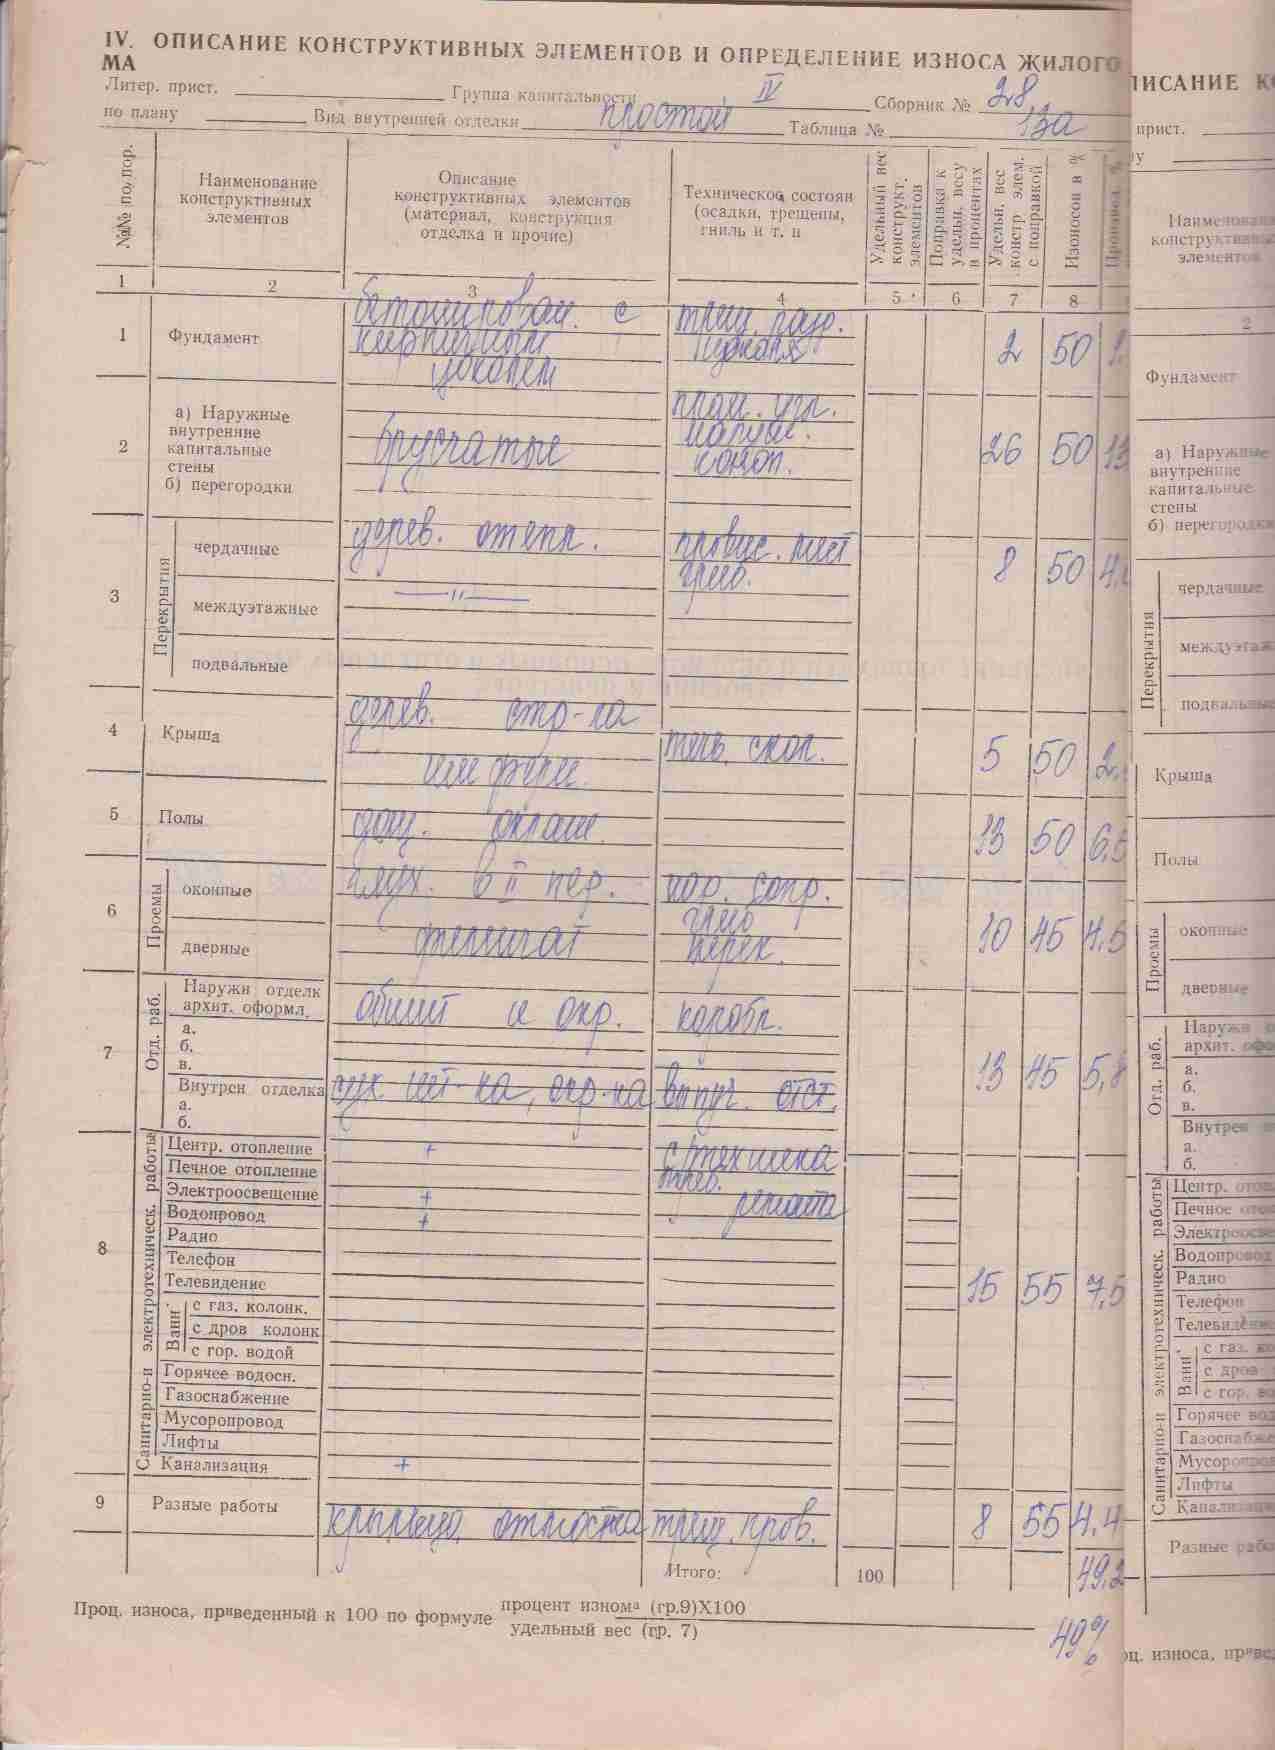 IV. ОПИСАНИЕ КОНСТРУКТИВНЫХ ЭЛЕМЕНТОВ И ОПРЕДЕЛЕНИЕ ИЗНОСА ЖИЛОГО
МА
Литер. прист. Группа капитальности IV Сборник № 28
по плану Вид внутренней отделки простой Таблица № 13а
№№ по пор.
Наименование конструктивных элементов
Описание конструктивных элементов (материал, конструкция отделка и прочие)
Техническое состоян (осадки, трещены, гниль и т. п
Удельный вес конструкт. элементов
Поправка к удельн. весу в процентах
Удельн. вес констр. элем. с поправкой
Износ в %
1 2 3 4 5 6 7 8
1 Фундамент бетонирован. с кирпичным цоколем трещ. цоколя 2 50
2 а) Наружные внутренние капитальные стены б) перегородки брусчатые коноп. 26 50 13
3 Перекрытия
чердачные дерев. отепл. провис. 8 50 4
междуэтажные —"—
подвальные
4 Крыша дерев. стр-ла шифери. скол. 5 50 2
5 Полы дощ. окраш. 13 50 6,5
6 Проемы
оконные глух. в II пер. пер. 10 45 4,5
дверные филенчат
7 Отд. раб.
Наружн отделк архит. оформл. обшит и окр. коробл. 13 45 5,8
а.
б.
в.
Внутрен отделка сух шт-ка, окр-ка выпуч. отст.
а.
б.
8 Санитарно-и электротехническ. работы
Центр. отопление + с/техника
Печное отопление треб.
Электроосвещение + ремонта
Водопровод +
Радио
Телефон
Телевидение 15 55 7,5
Ванн
с газ. колонк.
с дров колонк
с гор. водой
Горячее водосн.
Газоснабжение
Мусоропровод
Лифты
Канализация +
9 Разные работы крыльца отмостка трещ. пров. 8 55 4,4
Итого: 100 49,2
Проц. износа, приведенный к 100 по формуле процент износа (гр.9)Х100
удельный вес (гр. 7)
49%
ПИСАНИЕ
прист.
Наименован
конструктивны
элементов
2
Фундамент
а) Наружные
внутренние
капитальные
стены
б) перегородки
Перекрытия
чердачные
междуэтаж
подвальные
Крыша
Полы
Проемы
оконные
дверные
Отд. раб.
Наружн
архит.
а.
б.
в.
Внутрен
а.
б.
Санитарно-и электротехническ. работы
Центр.
Печное
Электроосве
Водопровод
Радио
Телефон
Телевидение
Ванн
с газ.
с дров
с гор.
Горячее
Газоснабже
Мусоропро
Лифты
Канализаци
Разные
оц. износа, приве